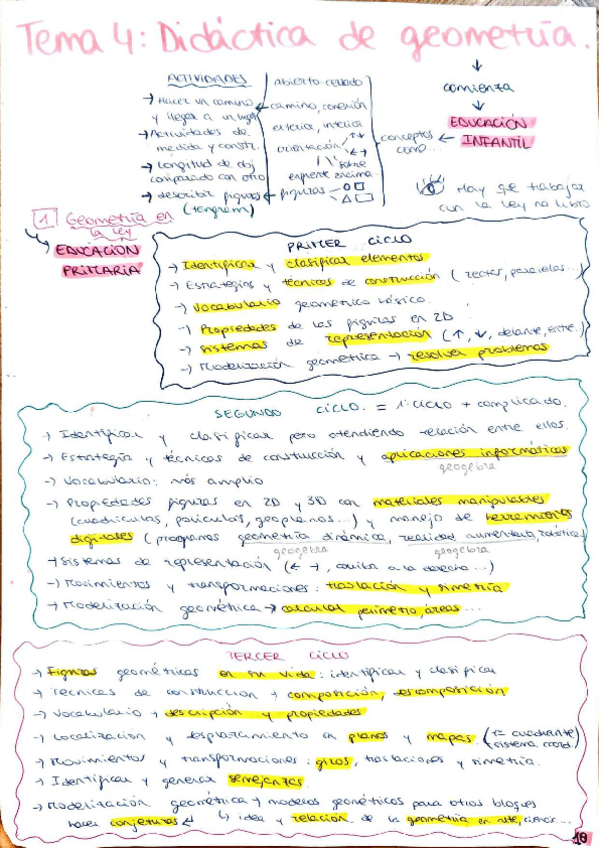 Tema 4: Didáctica de geometría.
comienza
EDUCACIÓN
INFANTIL
conceptos
como...
ACTIVIDADES
→ Hacer un camino
y llegar a un lugar
→ Actividades de
medida y constr.
→ longitud de obj
comparado con otro
→ describir figuras
(tangram)
abierto-cerrado
camino, conexión
exterior, interior
orientación
sobre
enfrente encima
figuras
Hay que trabajar
con la ley no libro
1 Geometría en
la ley
EDUCACIÓN
PRIMARIA
PRIMER CICLO
→ Identificar y clasificar elementos
→ Estrategias y técnicas de construcción (rectas, paralelas...)
→ Vocabulario geométrico básico.
→ Propiedades de las figuras en 2D
→ sistemas de representación (↑, ↓, delante, entre.)
→ Modelización geométrica → resolver problemas
SEGUNDO CICLO. = 1º ciclo + complicado.
→ Identificar y clasificar pero atendiendo relación entre ellos.
→ Estrategia y técnicas de construcción y aplicaciones informáticas
geogebra
→ Vocabulario: más amplio
→ Propiedades figuras en 2D y 3D con materiales manipulables
(cuadrículas, policubos, geoplanos...) y manejo de herramientas
digitales (programas geometría dinámica, realidad aumentada, robótica)
geogebra geogebra
→ Sistemas de representación (← →, arriba a la derecha...)
→ Movimientos y transformaciones: traslación y simetría
→ Modelización geométrica → calcular perímetro, áreas...
TERCER CICLO
→ Figuras geométricas en su vida: identificar y clasificar
→ Técnicas de construcción → composición, descomposición
→ Vocabulario → descripción y propiedades
→ Localización y desplazamiento en planos y mapas. (1er cuadrante) sistema coord.
→ Movimientos y transformaciones: giros, traslaciones y simetría.
→ Identificar y generar semejanzas.
→ Modelización geométrica + modelos geométricos para otros bloques
hacer conjeturas ↵ ↳ idea y relación de la geometría en arte, ciencia...
10